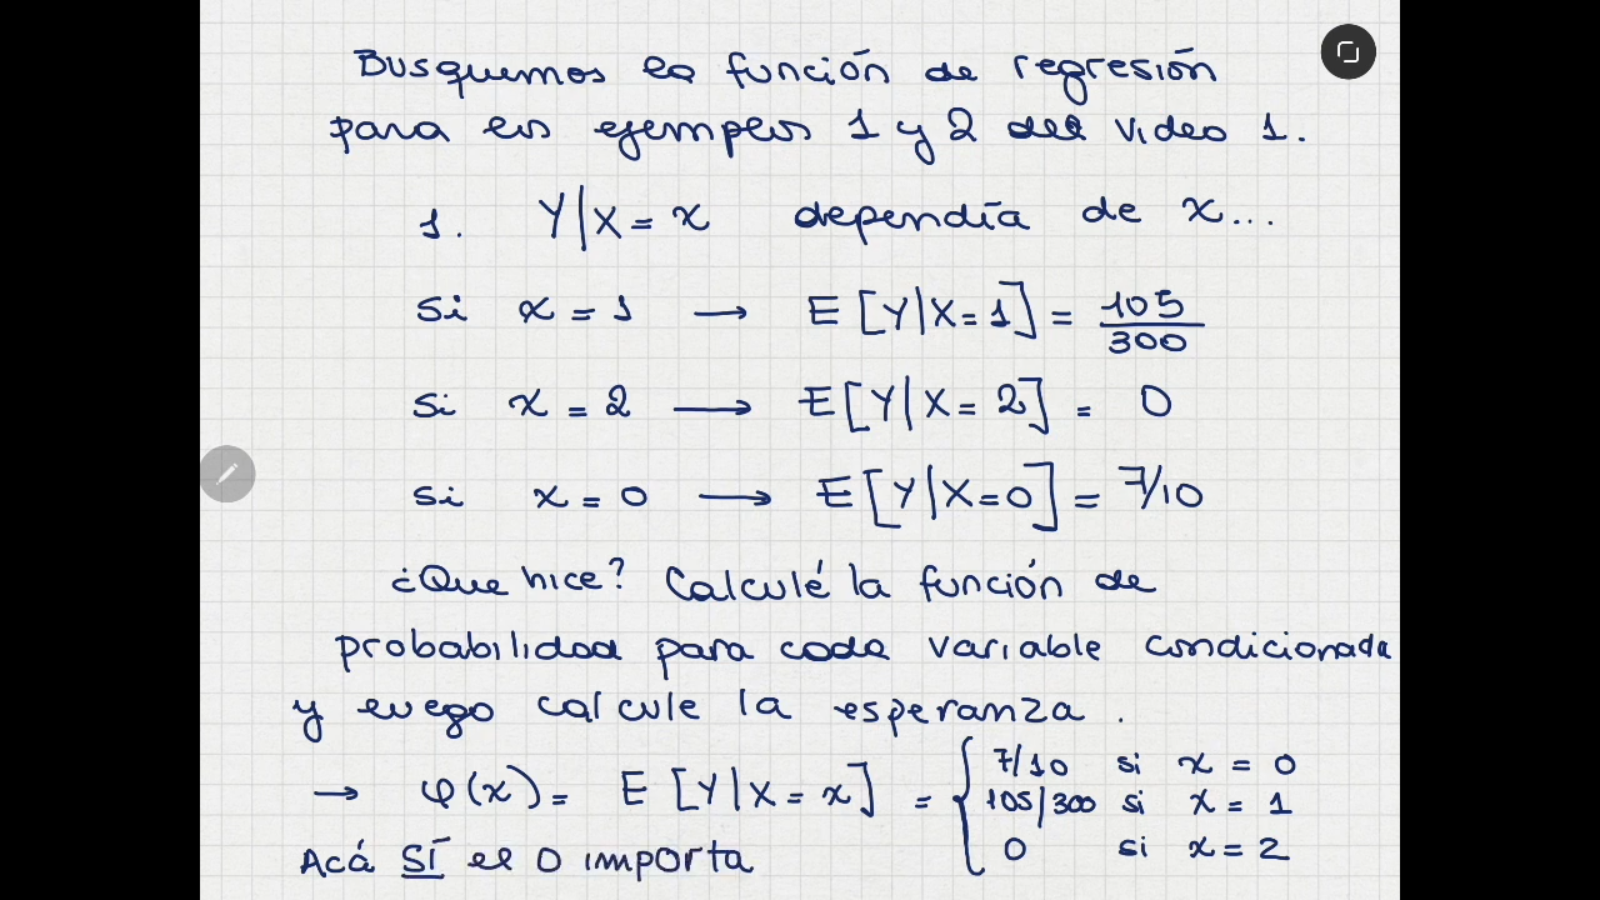 Busquemos la función de regresión
para los ejemplos 1 y 2 del video 1.
1. Y|X=x dependía de x...
Si x=1 → E[Y|X=1] = 105/300
Si x=2 → E[Y|X=2] = 0
Si x=0 → E[Y|X=0] = 7/10
¿Que hice? Calculé la función de
probabilidad para cada variable condicionada
y luego calcule la esperanza.
→ φ(x) = E[Y|X=x] = { 7/10 si x=0
105/300 si x=1
0 si x=2
Acá SÍ el 0 importa